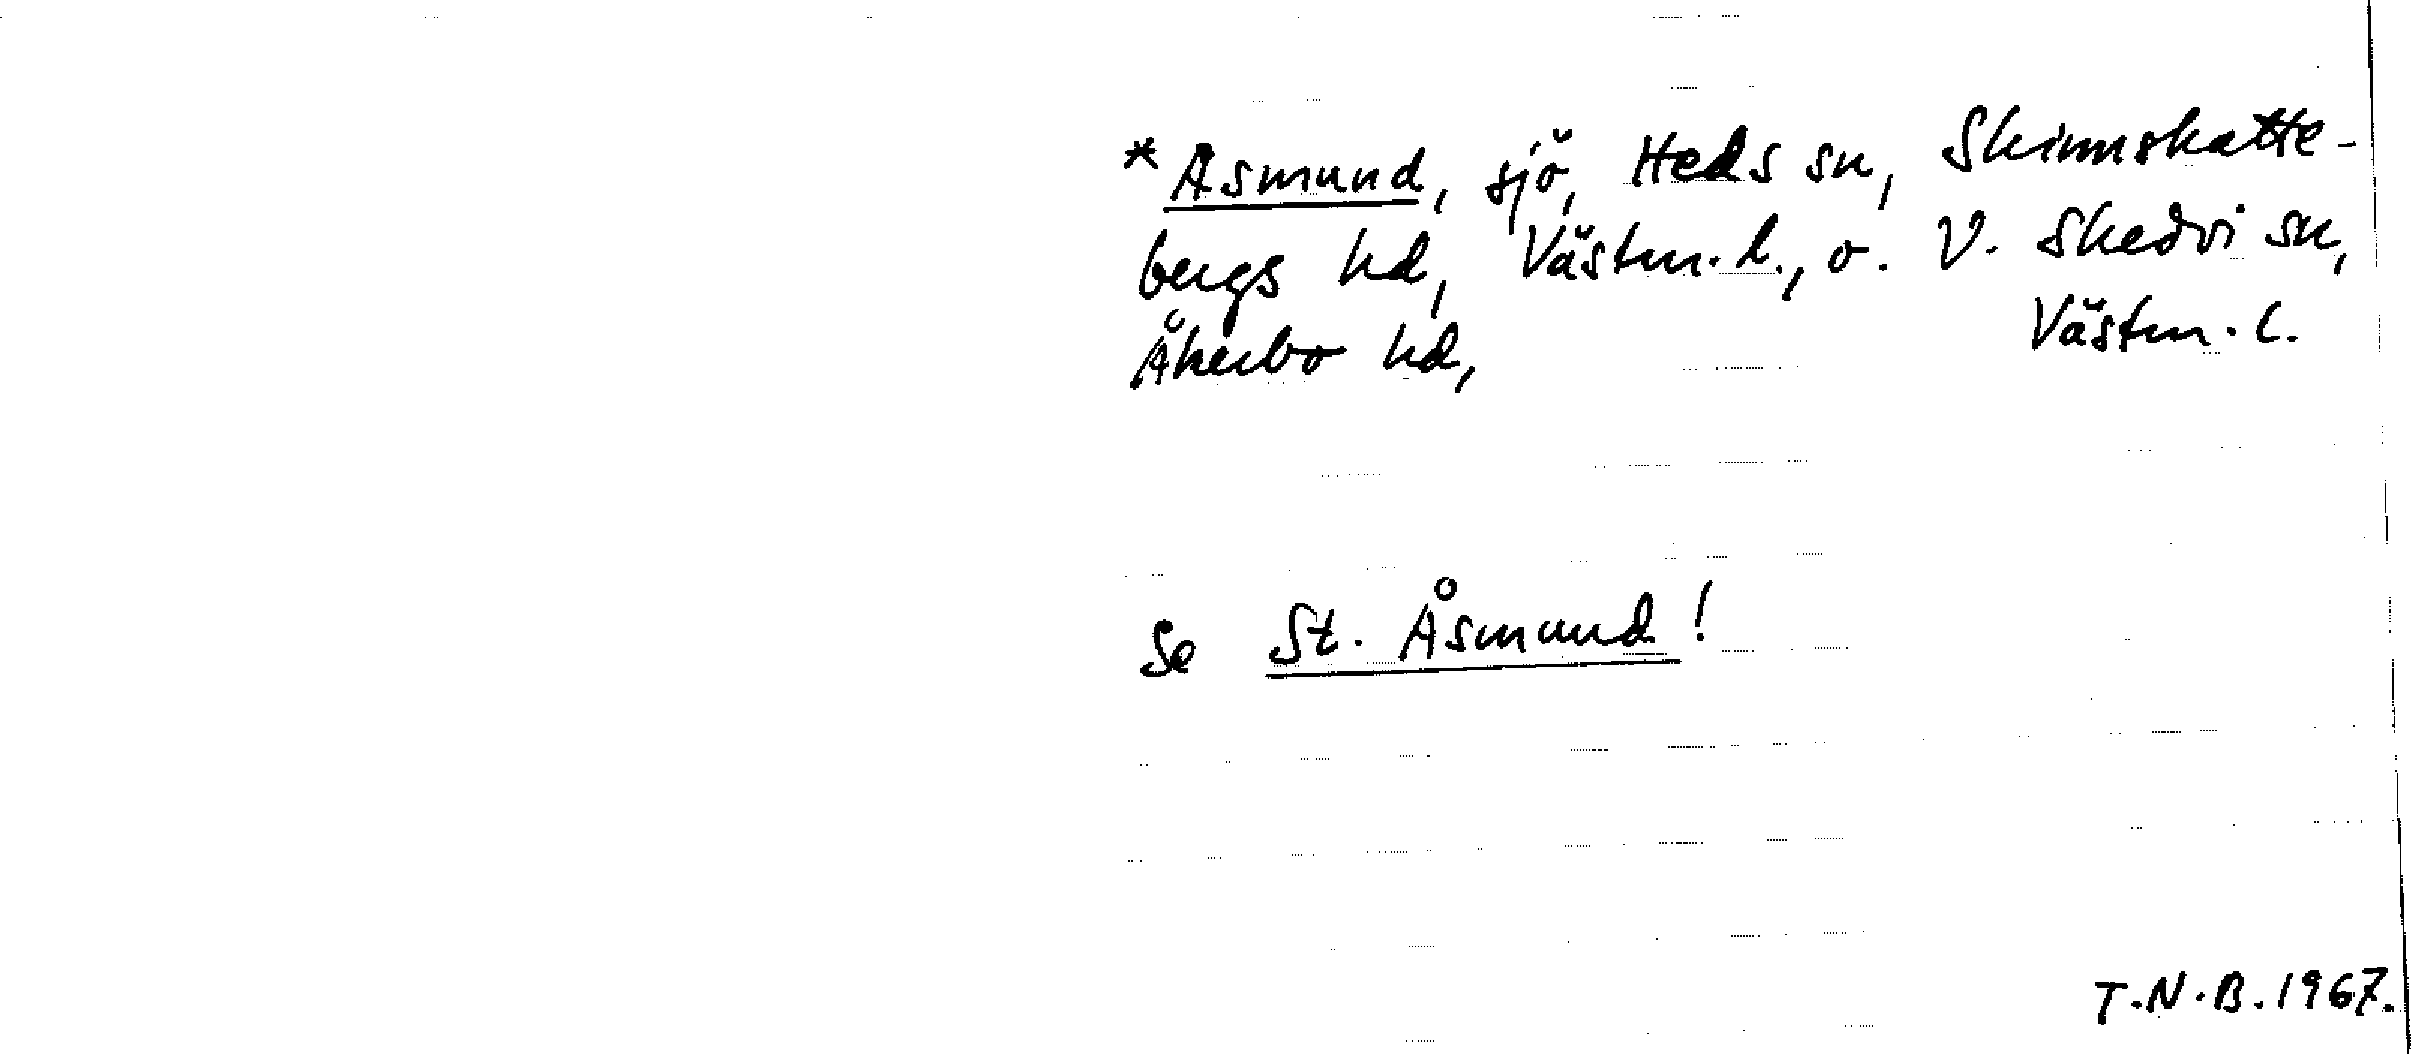 *Åsmund, sjö, Heds sn, Skinnskatte-
bergs hd, Västm. l., o. V. Skedvi sn,
Åkerbo hd, Västm. l.
Se St. Åsmund!
T.N.B. 1967.